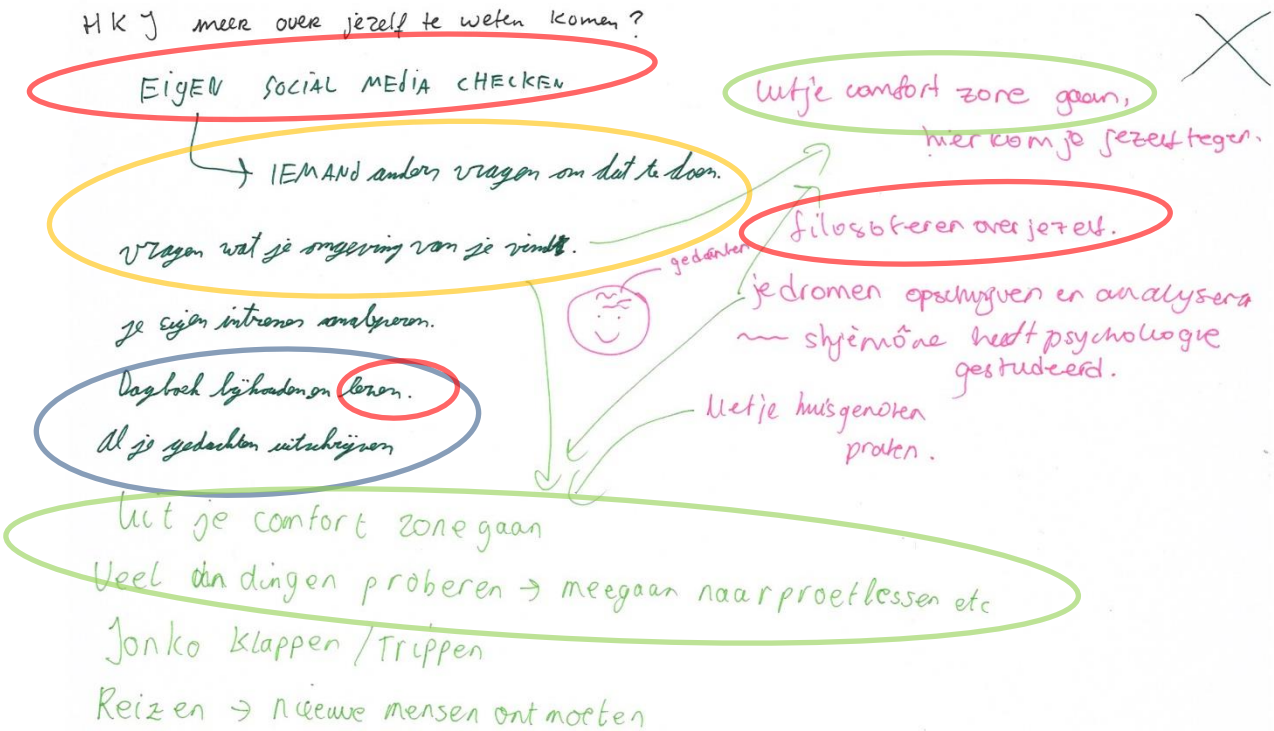 HKJ meer over jezelf te weten komen?
EigEN SOCiAL MEDiA CHECKEN
IEMANd anders vragen om dat te doen.
vragen wat je omgeving van je vindt.
je eigen intresses analyseren.
Dagboek bijhouden en lezen.
Al je gedachten uitschrijven
Uit je comfort zone gaan
Veel dingen proberen → meegaan naar proeflessen etc
Jonko klappen / Trippen
Reizen → nieuwe mensen ontmoeten
Uit je comfort zone gaan,
hier kom je jezelf tegen.
filosoferen over jezelf.
gedachten
je dromen opschrijven en analyseren
heeft psychologie
gestudeerd.
Met je huisgenoten
praten.